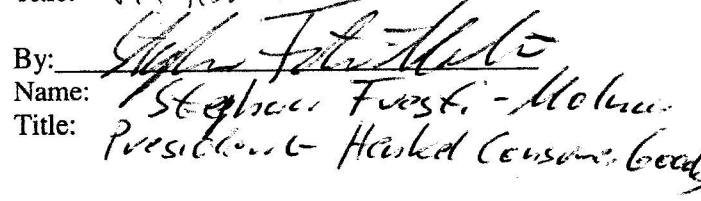 Title:
By:
Name: Stephan Fuesti-Molnar
Title: President Henkel Consumer Goods